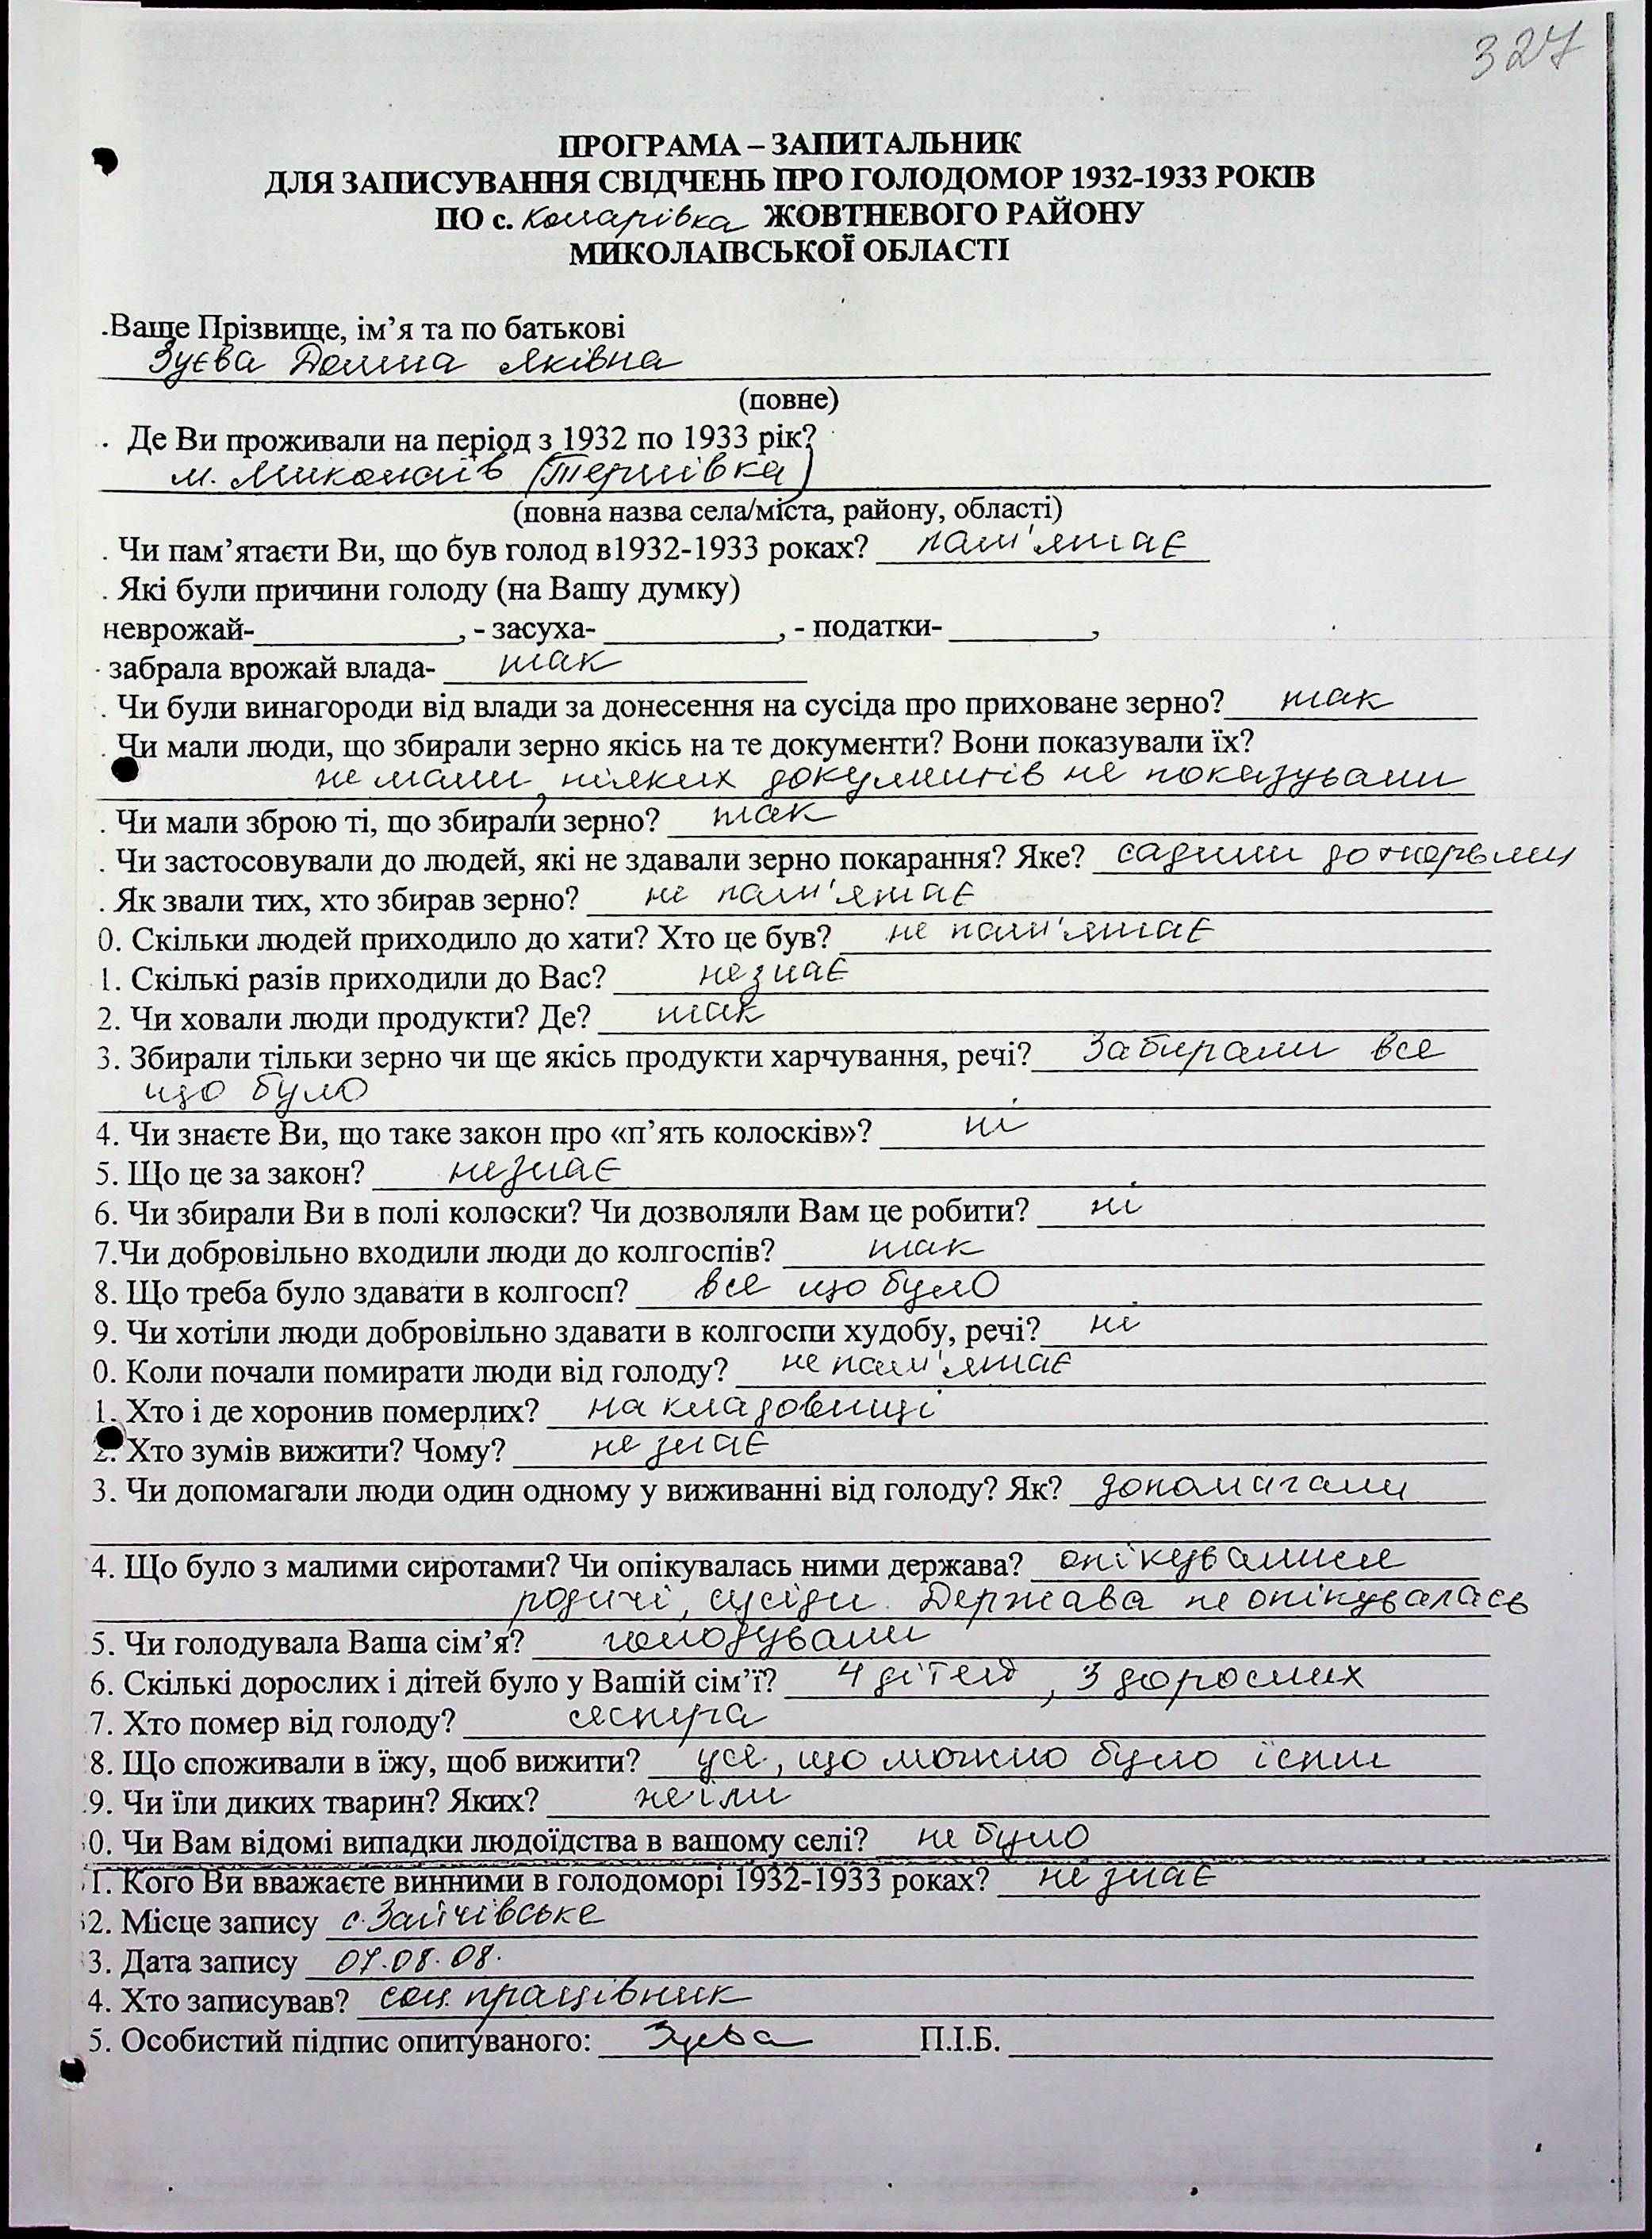 327
ПРОГРАМА – ЗАПИТАЛЬНИК
ДЛЯ ЗАПИСУВАННЯ СВІДЧЕНЬ ПРО ГОЛОДОМОР 1932-1933 РОКІВ
ПО с. Комарівка ЖОВТНЕВОГО РАЙОНУ
МИКОЛАЇВСЬКОЇ ОБЛАСТІ
.Ваше Прізвище, ім’я та по батькові
Зуєва Домна Яківна
(повне)
. Де Ви проживали на період з 1932 по 1933 рік?
м. Миколаїв (Тернівка)
(повна назва села/міста, району, області)
. Чи пам’ятаєти Ви, що був голод в1932-1933 роках? пам'ятає
. Які були причини голоду (на Вашу думку)
неврожай-____________, - засуха- ___________, - податки- _________,
- забрала врожай влада- так
. Чи були винагороди від влади за донесення на сусіда про приховане зерно? так
. Чи мали люди, що збирали зерно якісь на те документи? Вони показували їх?
не мали, ніяких документів не показували
. Чи мали зброю ті, що збирали зерно? так
. Чи застосовували до людей, які не здавали зерно покарання? Яке? садили до тюрьми
. Як звали тих, хто збирав зерно? не пам'ятає
0. Скільки людей приходило до хати? Хто це був? не пам'ятає
1. Скількі разів приходили до Вас? не знає
2. Чи ховали люди продукти? Де? так
3. Збирали тільки зерно чи ще якісь продукти харчування, речі? Забирали все
що було
4. Чи знаєте Ви, що таке закон про «п’ять колосків»? ні
5. Що це за закон? не знає
6. Чи збирали Ви в полі колоски? Чи дозволяли Вам це робити? ні
7.Чи добровільно входили люди до колгоспів? так
8. Що треба було здавати в колгосп? все що було
9. Чи хотіли люди добровільно здавати в колгоспи худобу, речі? ні
0. Коли почали помирати люди від голоду? не пам'ятає
1. Хто і де хоронив померлих? на кладовищі
2. Хто зумів вижити? Чому? не знає
3. Чи допомагали люди один одному у виживанні від голоду? Як? допомагали
4. Що було з малими сиротами? Чи опікувалась ними держава? опікувалися
родичі, сусіди. Держава не опікувалась
5. Чи голодувала Ваша сім’я? голодували
6. Скількі дорослих і дітей було у Вашій сім’ї? 4 дітей, 3 дорослих
7. Хто помер від голоду? сестра
8. Що споживали в їжу, щоб вижити? усе, що можно було їсти
9. Чи їли диких тварин? Яких? не їли
0. Чи Вам відомі випадки людоїдства в вашому селі? не було
1. Кого Ви вважаєте винними в голодоморі 1932-1933 роках? не знає
2. Місце запису с. Зайчівське
3. Дата запису 07.08.08.
4. Хто записував? соц. працівник
5. Особистий підпис опитуваного: Зуєва П.І.Б.